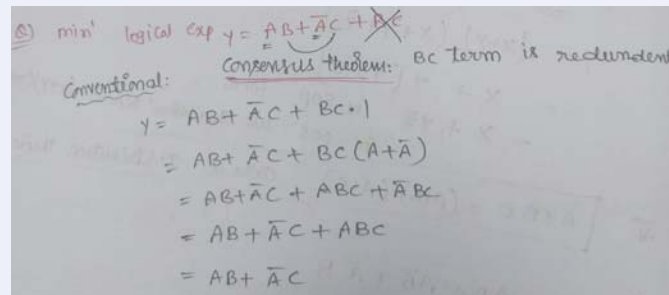 Q) min' logical exp y = AB + A̅C + BC
Consensus theorem: BC term is redundent
Conventional:
y = AB + A̅C + BC·1
= AB + A̅C + BC(A+A̅)
= AB + A̅C + ABC + A̅BC
= AB + A̅C + ABC
= AB + A̅C